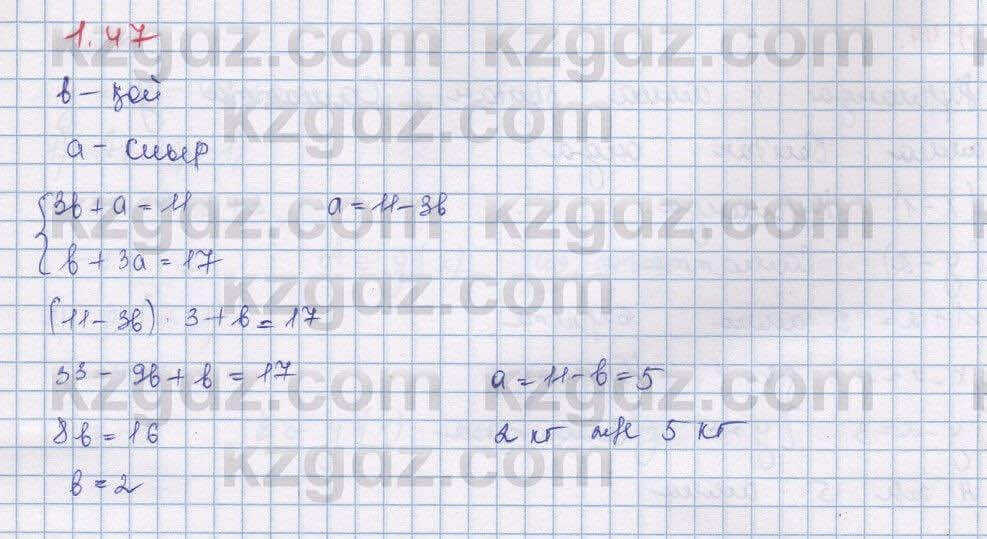 1.47
в – қой
а – сиыр
{3в + а = 11    а = 11 – 3в
в + 3а = 17
(11 – 3в) · 3 + в = 17
33 – 9в + в = 17    а = 11 – в = 5
8в = 16    2 кг және 5 кг
в = 2
kzgdz.com kzgdz.com
kzgdz.com
kzgdz.com kzgdz.com
kzgdz.com
kzgdz.com kzgdz.com
kzgdz.com